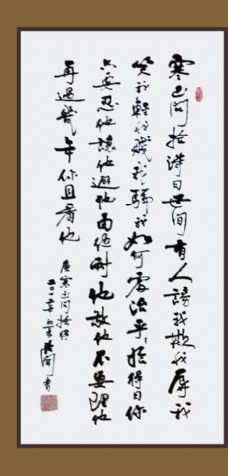 寒山问拾得曰世间有人谤我欺我辱我
笑我轻我贱我骗我如何处治乎拾得曰你
只要忍他让他避他由他耐他敬他不要理他
再过几年你且看他